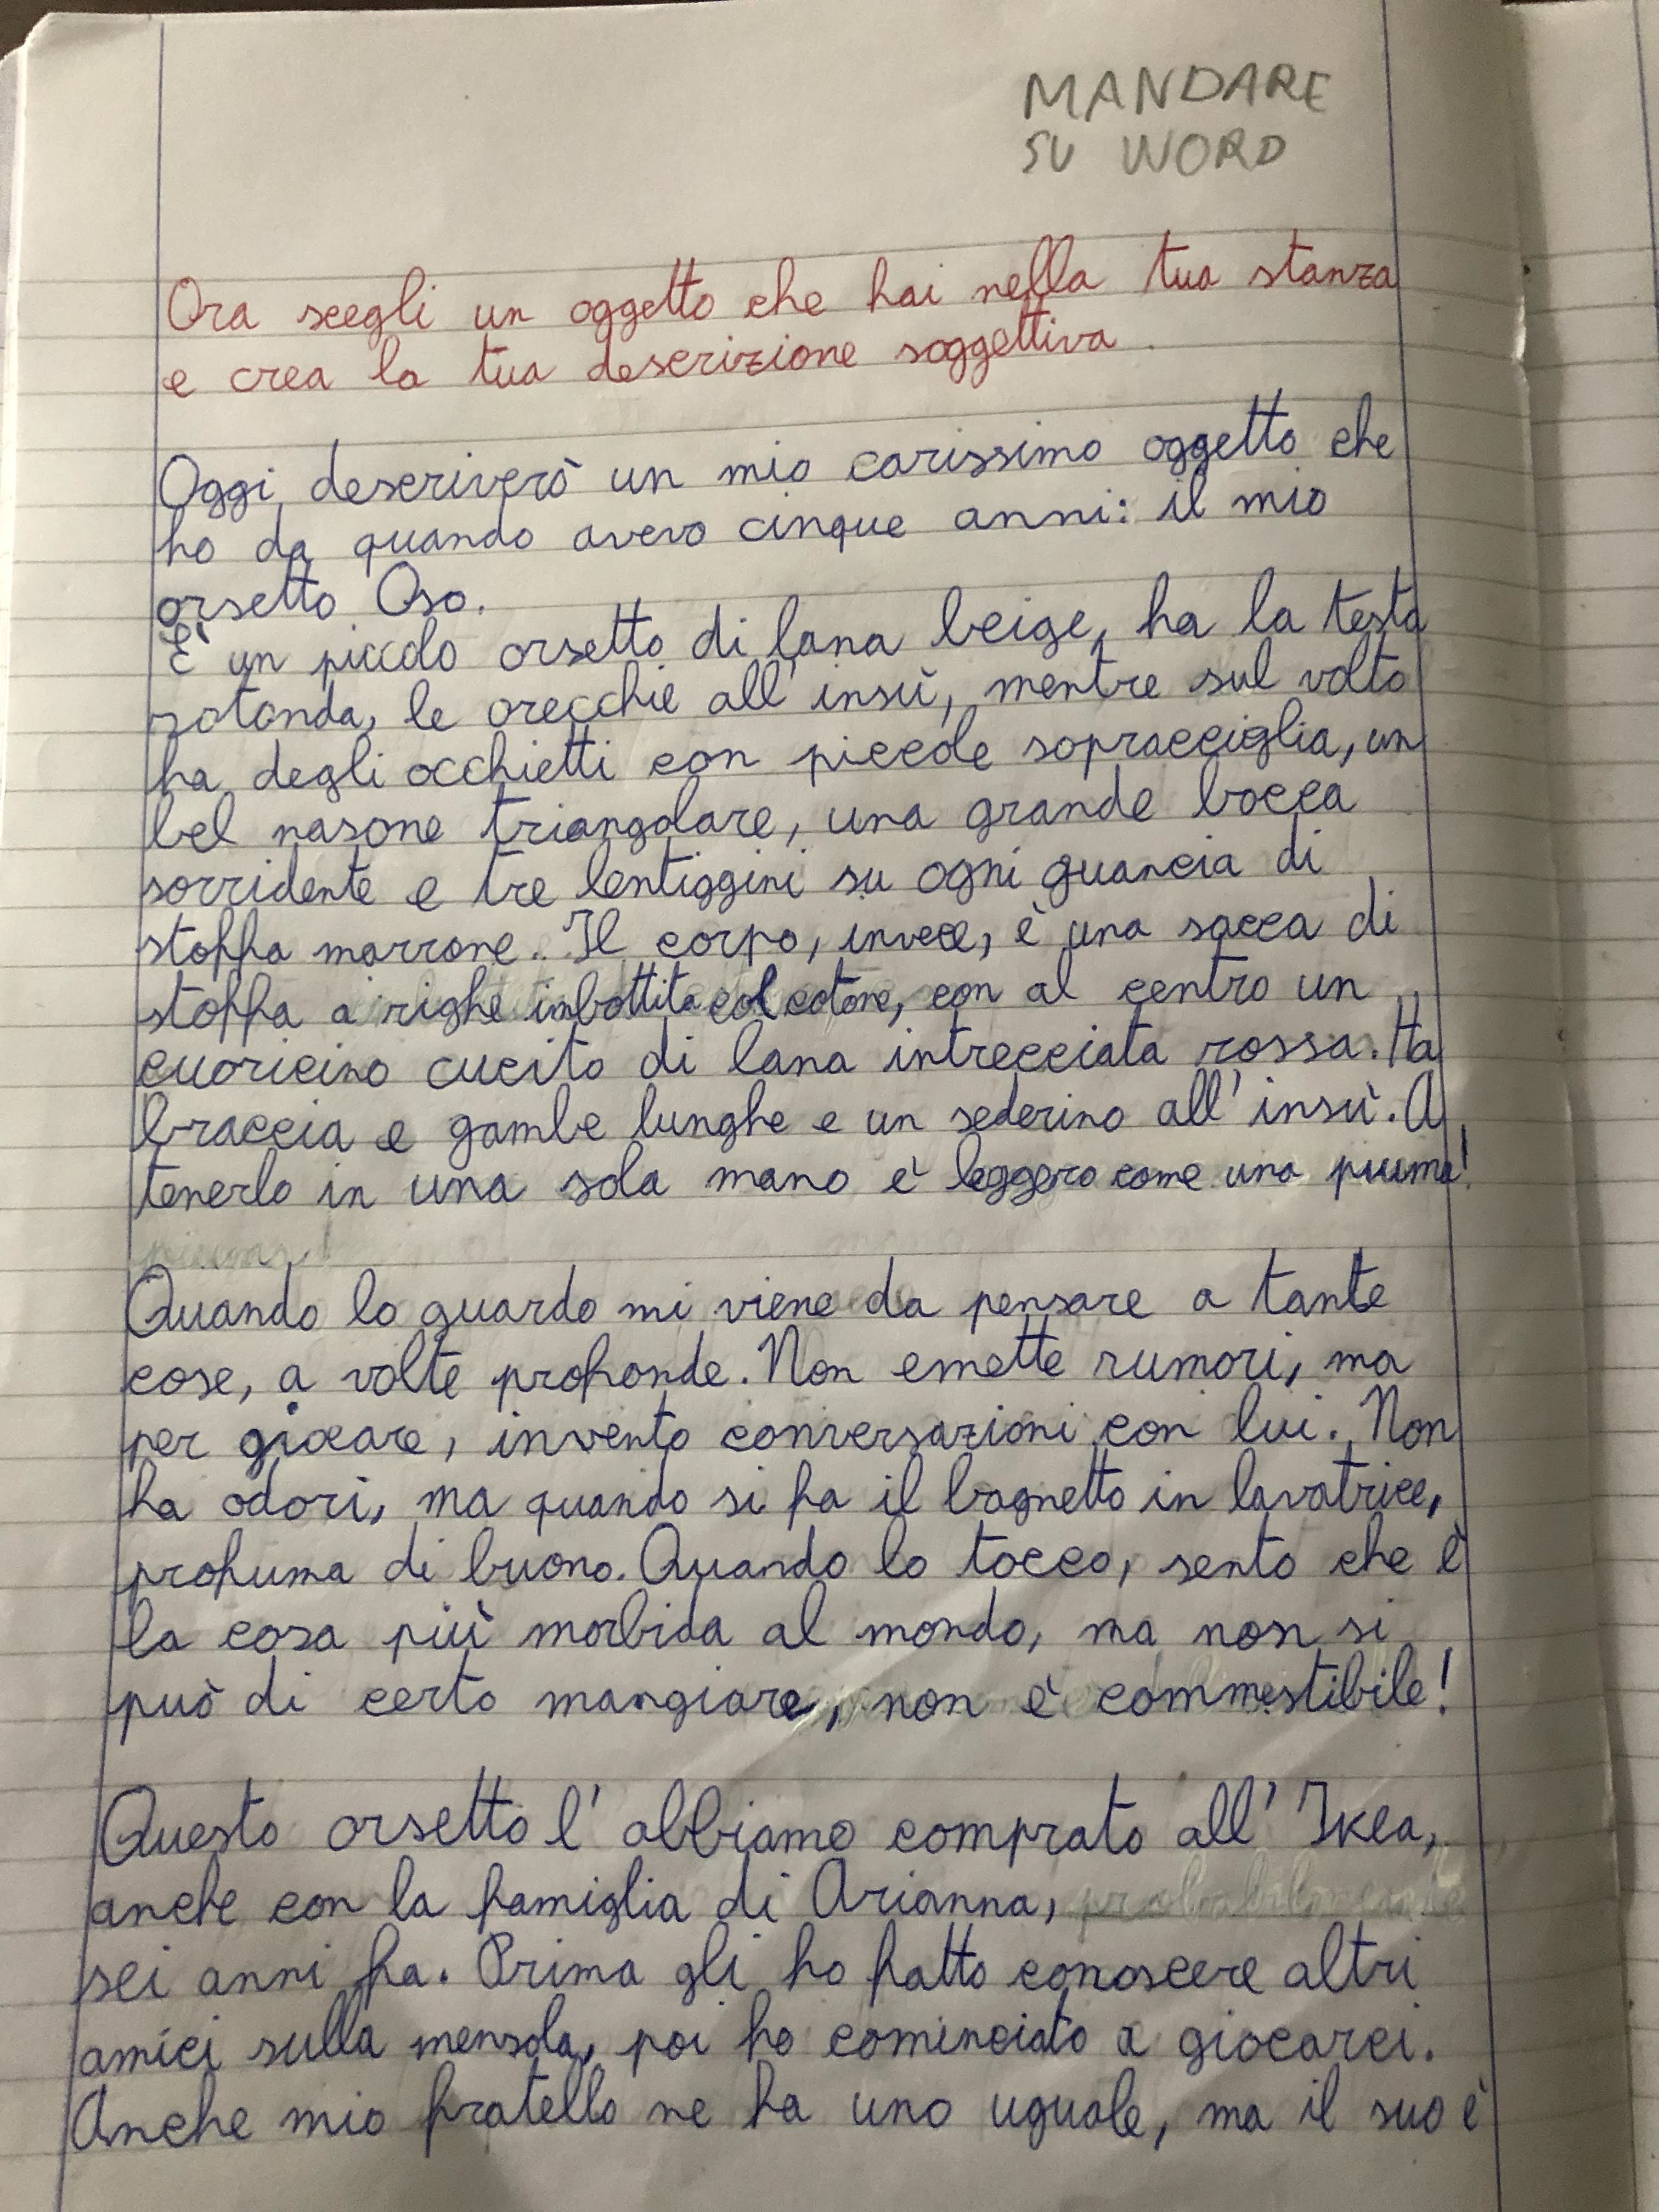 MANDARE
SU WORD
Ora scegli un oggetto che hai nella tua stanza
e crea la tua descrizione soggettiva.
Oggi descriverò un mio carissimo oggetto che
ho da quando avevo cinque anni: il mio
orsetto Oso.
È un piccolo orsetto di lana beige, ha la testa
rotonda, le orecchie all'insù, mentre sul volto
ha degli occhietti con piccole sopracciglia, un
bel nasone triangolare, una grande bocca
sorridente e tre lentiggini su ogni guancia di
stoffa marrone. Il corpo, invece, è una sacca di
stoffa a righe imbottita col cotone, con al centro un
cuoricino cucito di lana intrecciata rossa. Ha
braccia e gambe lunghe e un sederino all'insù. A
tenerlo in una sola mano è leggero come una piuma!
Quando lo guardo mi viene da pensare a tante
cose, a volte profonde. Non emette rumori, ma
per giocare, invento conversazioni con lui. Non
ha odori, ma quando si fa il bagnetto in lavatrice,
profuma di buono. Quando lo tocco, sento che è
la cosa più morbida al mondo, ma non si
può di certo mangiare, non è commestibile!
Questo orsetto l'abbiamo comprato all'Ikea,
anche con la famiglia di Arianna,
sei anni fa. Prima gli ho fatto conoscere altri
amici sulla mensola, poi ho cominciato a giocarci.
Anche mio fratello ne ha uno uguale, ma il suo è